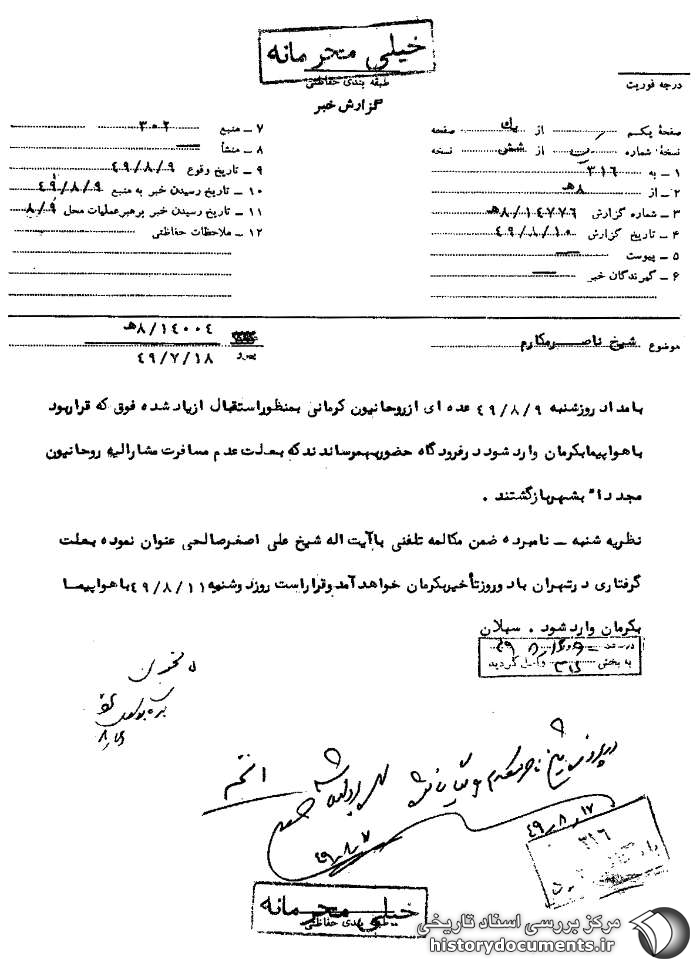 خیلی محرمانه
طبقه بندی حفاظتی
گزارش خبر
درجه فوریت
صفحهٔ یکم از یک صفحه
نسخهٔ شماره از شش نسخه
۱ ـ به ۳۱۶
۲ ـ از ۸ﻫ
۳ ـ شماره گزارش ۸/۱۴۷۷۶ﻫ
۴ ـ تاریخ گزارش ۴۹/۸/۱۰
۵ ـ پیوست
۶ ـ گیرندگان خبر
۷ ـ منبع ۳۰۲
۸ ـ منشأ
۹ ـ تاریخ وقوع ۴۹/۸/۹
۱۰ ـ تاریخ رسیدن خبر به منبع ۴۹/۸/۹
۱۱ ـ تاریخ رسیدن خبر برهبر عملیات محل ۸/۹
۱۲ ـ ملاحظات حفاظتی
موضوع شیخ ناصر مکارم
پیرو ۸/۱۴۰۰۴ﻫ
۴۹/۷/۱۸
بامداد روز شنبه ۴۹/۸/۹ عده ای از روحانیون کرمانی بمنظور استقبال از یاد شده فوق که قرار بود
با هواپیما بکرمان وارد شود در فرودگاه حضور بهمرساندند که بعلت عدم مسافرت مشارالیه روحانیون
مجدداً بشهر بازگشتند .
نظریه شنبه ـ نامبرده ضمن مکالمه تلفنی با آیت اله شیخ علی اصغر صالحی عنوان نموده بعلت
گرفتاری در تهران با دو روز تأخیر بکرمان خواهد آمد و قرار است روز دوشنبه ۴۹/۸/۱۱ با هواپیما
بکرمان وارد شود . سهلان
به بخش ۳۱۶ واصل گردید
در پرونده شیخ ناصر مکارم
۴۹/۸/۱۷
۳۱۶
خیلی محرمانه
طبقه بندی حفاظتی
مرکز بررسی اسناد تاریخی
historydocuments.ir